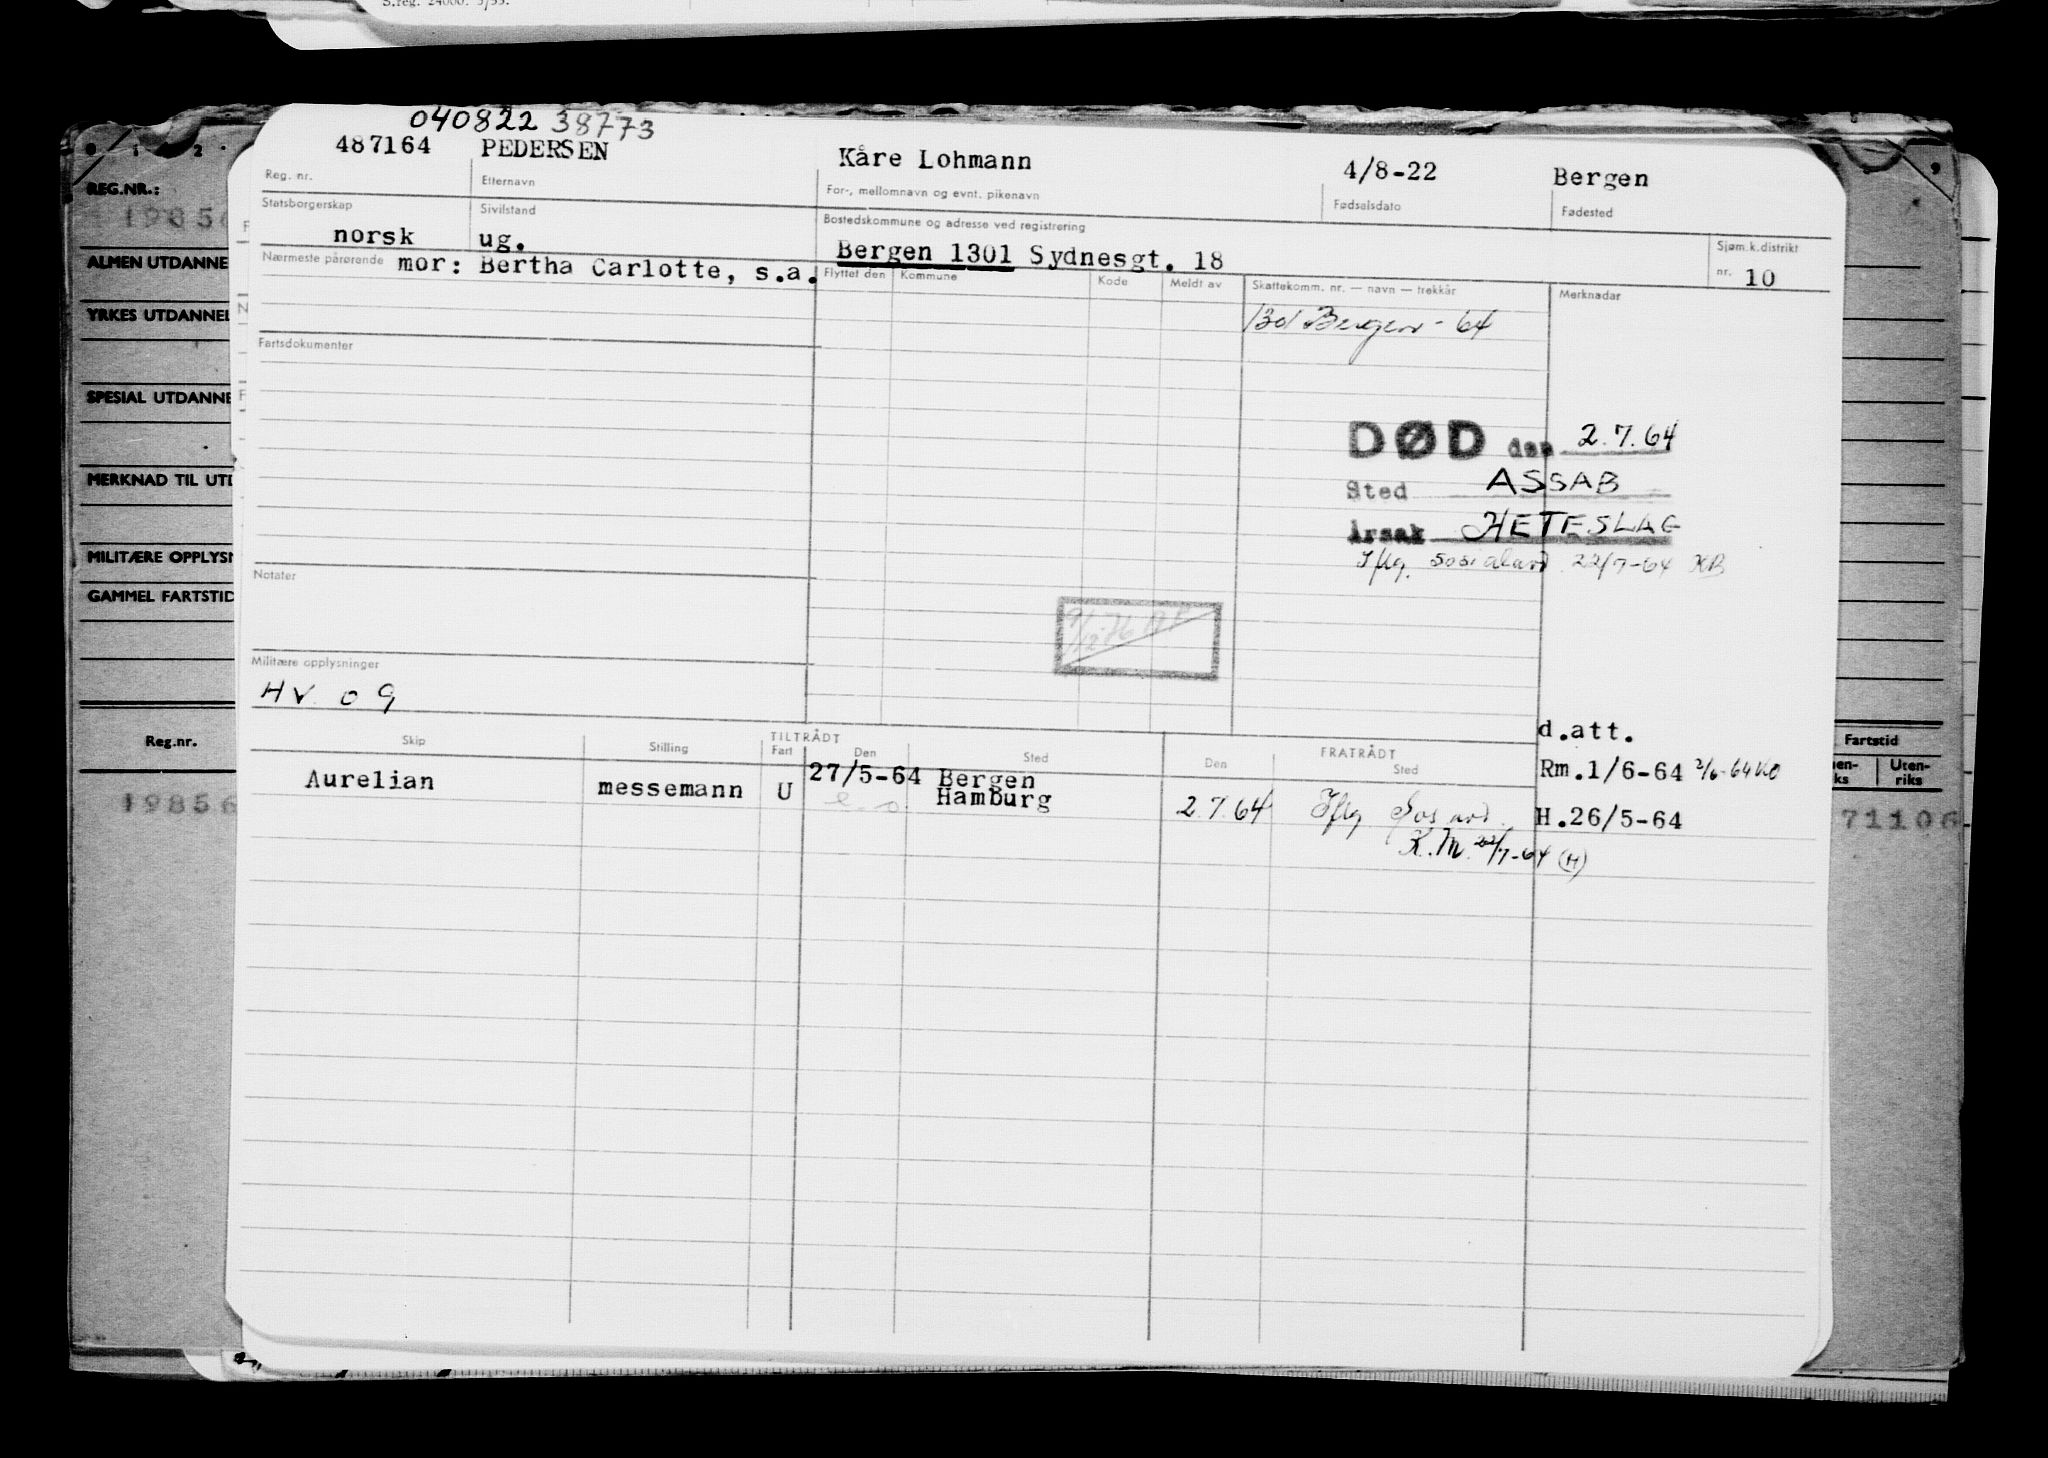 S.reg. 24000. 3/55.
040822 38773
487164 PEDERSEN Kåre Lohmann 4/8-22 Bergen
Reg. nr. Etternavn For-, mellomnavn og evnt. pikenavn Fødselsdato Fødested
Statsborgerskap Sivilstand Bostedskommune og adresse ved registrering Sjøm.k.distrikt
norsk ug. Bergen 1301 Sydnesgt. 18 nr. 10
Nærmeste pårørende mor: Bertha Carlotte, s.a. Flyttet den Kommune Kode Meldt av Skattekomm. nr. — navn — trekkår Merknadar
1301 Bergen - 64
Fartsdokumenter
DØD den 2.7.64
Sted ASSAB
Årsak HETESLAG
Iflg. sosialavd 22/7-64 KB
Notater
9/12-76
Militære opplysninger
HV 09
d.att.
Skip Stilling TILTRÅDT Fart Den Sted FRATRÅDT Den Sted
Aurelian messemann U 27/5-64 Bergen Rm.1/6-64 2/6-64 KO
Hamburg 2.7.64 Iflg Sos avd. H.26/5-64
K.M. 22/7-64 (H)
REG.NR.:
ALMEN UTDANNE
YRKES UTDANNEL
SPESIAL UTDANNE
MERKNAD TIL UTD
MILITÆRE OPPLYSN
GAMMEL FARTSTID
Reg.nr.
19856
Fartstid
en-
ks
Uten-
riks
71106